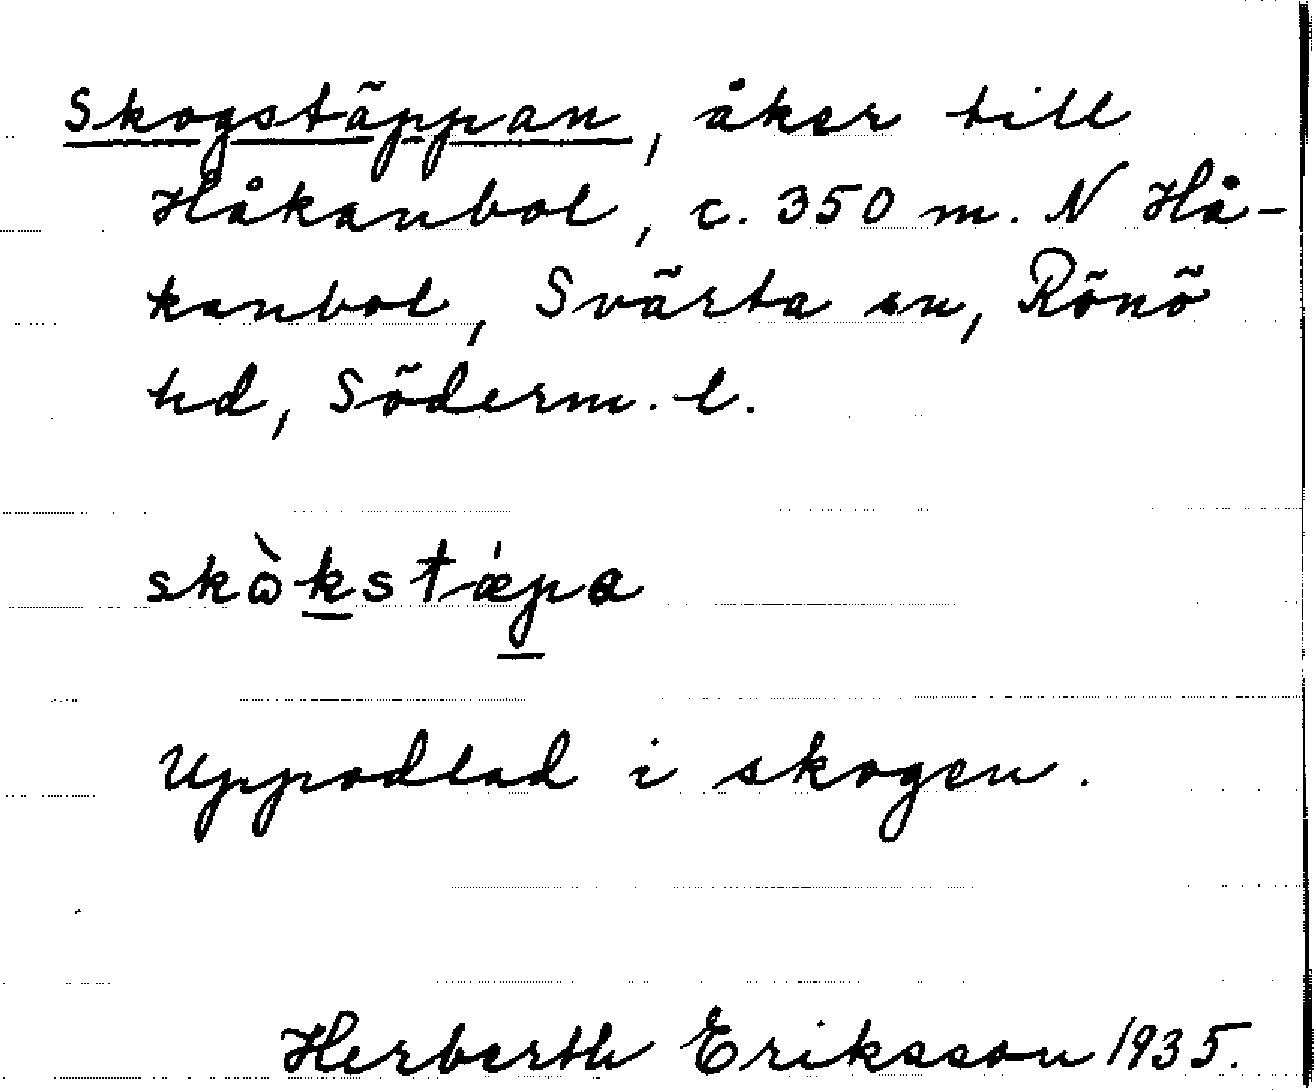 Skogstäppan, åker till
Håkanbol, c. 350 m. N Hå-
kanbol, Svärta sn, Rönö
hd, Söderm. l.
skὼkstǽpa
Uppodlad i skogen.
Herberth Eriksson 1935.